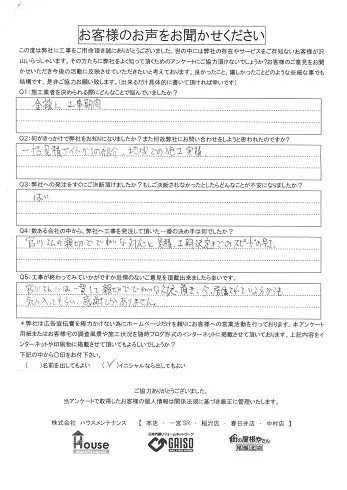 お客様のお声をお聞かせください
この度は弊社に工事をご用命頂き誠にありがとうございました。世の中には弊社の存在やサービスをご存知ないお客様が沢
山いらっしゃいます。その方たちに弊社をよく知って頂くためのアンケートにご協力頂けないでしょうか?お客様のご意見をお聞
かせいただき今後の活動に反映させていただきたいと考えております。良かったこと、嬉しかったことどのような些細な事でも
結構です。是非ご協力お願い致します。(出来るだけ具体的に書いて頂ければ幸いです)
Q1:施工業者を決められる際にどんなことで悩んでいましたか?
金額と工事期間
Q2:何がきっかけで弊社をお知りになりましたか?また何故弊社にお問い合わせをしようと思われたのですか?
一括見積サイトからの紹介、地域での施工実績
Q3:弊社への発注をすぐにご決断頂けましたか?もしご決断されなかったとしたらどんなことが不安になりましたか?
はい
Q4:数ある会社の中から、弊社へ工事を発注して頂いた一番の決め手は何でしたか?
宮川さんの親切でていねいな対応と見積、工期決定までのスピードの早さ
Q5:工事が終わってみていかがですか忌憚のないご意見を頂戴出来ましたら幸いです。
宮川さんには一貫して親切でていねいな対応頂き、
感謝しかありません。
*弊社は広告宣伝費を極力かけない為にホームページだけを頼りにお客様への営業活動を行っております。本アンケート
用紙またはお客様宅の調査風景や施工状況を随時ブログ形式のインターネットに掲載させて頂いております。上記内容をイ
ンターネットや印刷物に掲載させて頂いてもよろしいでしょうか?
下記の中から〇印をお付下さい。
( )名前を出してもよい (✓)イニシャルなら出してもよい
ご協力ありがとうございました。
当アンケートで取得したお客様の個人情報は関係法規に基づき厳正に管理いたします。
株式会社 ハウスメンテナンス 【 本店 ・ 一宮SR ・ 稲沢店 ・ 春日井店 ・ 中村店 】
House
日本外装リフォームネットワーク
GAISO
街の屋根やさん